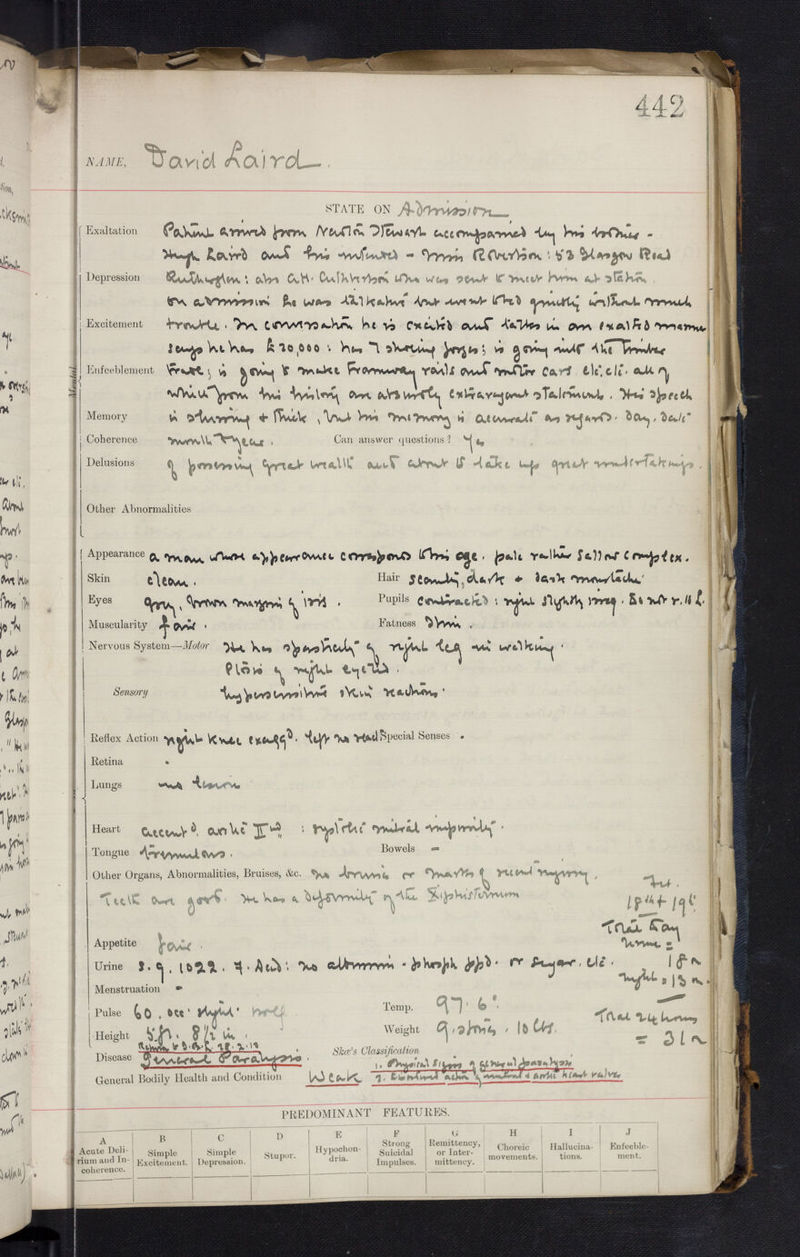 442
NAME, David Laird.
STATE ON Admission
Exaltation Patient arrived from Newton Stewart accompanied by his brother -
Hugh Laird and his - Robertson : 52 Glasgow Road
Depression Rutherglen : also Att. Cuthbertson who was sent to meet him at station.
On admission he was talkative but went to bed quietly without much
Excitement trouble. In conversation he is excited and talks in an exalted manner
Says he has £20,000 : has 7 forges ; is going into the Timber
Enfeeblement Trade ; is going to make Tramway rails and motor cars etc. etc. all of
which from his history are absurdly extravagant statements. His speech
Memory is slurring & thick, but his memory is accurate as regards day, date
Coherence month & year. Can answer questions? Yes
Delusions of possessing great wealth and about to take up great undertakings.
Mental
Other Abnormalities
Appearance a man whose appearance corresponds to his age. pale rather sallow complex.
Skin clean. Hair scanty, dark & dark moustache
Eyes grey, brown margin of iris. Pupils Contracted : right slightly irreg. Do not r. to L.
Muscularity fair. Fatness Thin.
Nervous System—Motor He has spasticity of right leg in walking.
Ptosis of right eyelid.
Sensory hypersensitive skin reactions.
Reflex Action right knee exaggd. left no read Special Senses .
Retina .
Lungs no lesion
Heart accentd. aortic IInd : systolic mitral impurity.
Tongue tremulous. Bowels =
Other Organs, Abnormalities, Bruises, &c. no bruise or marks of recent injury.
Teeth are good. He has a deformity of the Xiphisternum
18th & 19th
Total Day
Appetite fair.
Urine =
Urine S.g. 1022. Acid : no albumin - phosph ppd. or Sugar, etc. 18
Menstruation = night = 13
Pulse 60. occ slight Temp. 97.6°. Total 24 hours
Height 5 ft. 8 1/2 in. Weight 9 stones. 10 lbs. = 31
28.2.13
Disease General Paralysis. Skae's Classification 1. Physical Signs of general paralysis
General Bodily Health and Condition Weak 2. action of mitral & aortic heart valves
PREDOMINANT FEATURES.
A Acute Delirium and Incoherence.
B Simple Excitement.
C Simple Depression.
D Stupor.
E Hypochondria.
F Strong Suicidal Impulses.
G Remittency, or Intermittency.
H Choreic movements.
I Hallucinations.
J Enfeeblement.